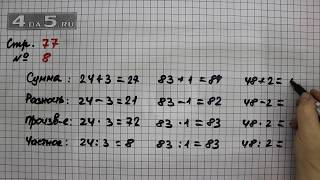 4DA5.RU
Стр. 77
№ 8
Сумма: 24+3=27 83+1=84 48+2=
Разность: 24-3=21 83-1=82 48-2=
Произв-е: 24·3=72 83·1=83 48·2=
Частное: 24:3=8 83:1=83 48:2=